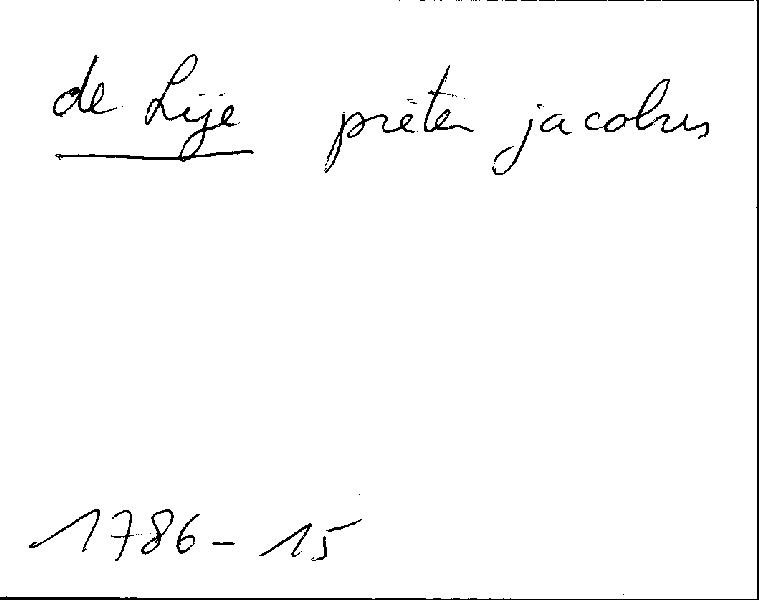 de Lije pieter jacobus
1786-15